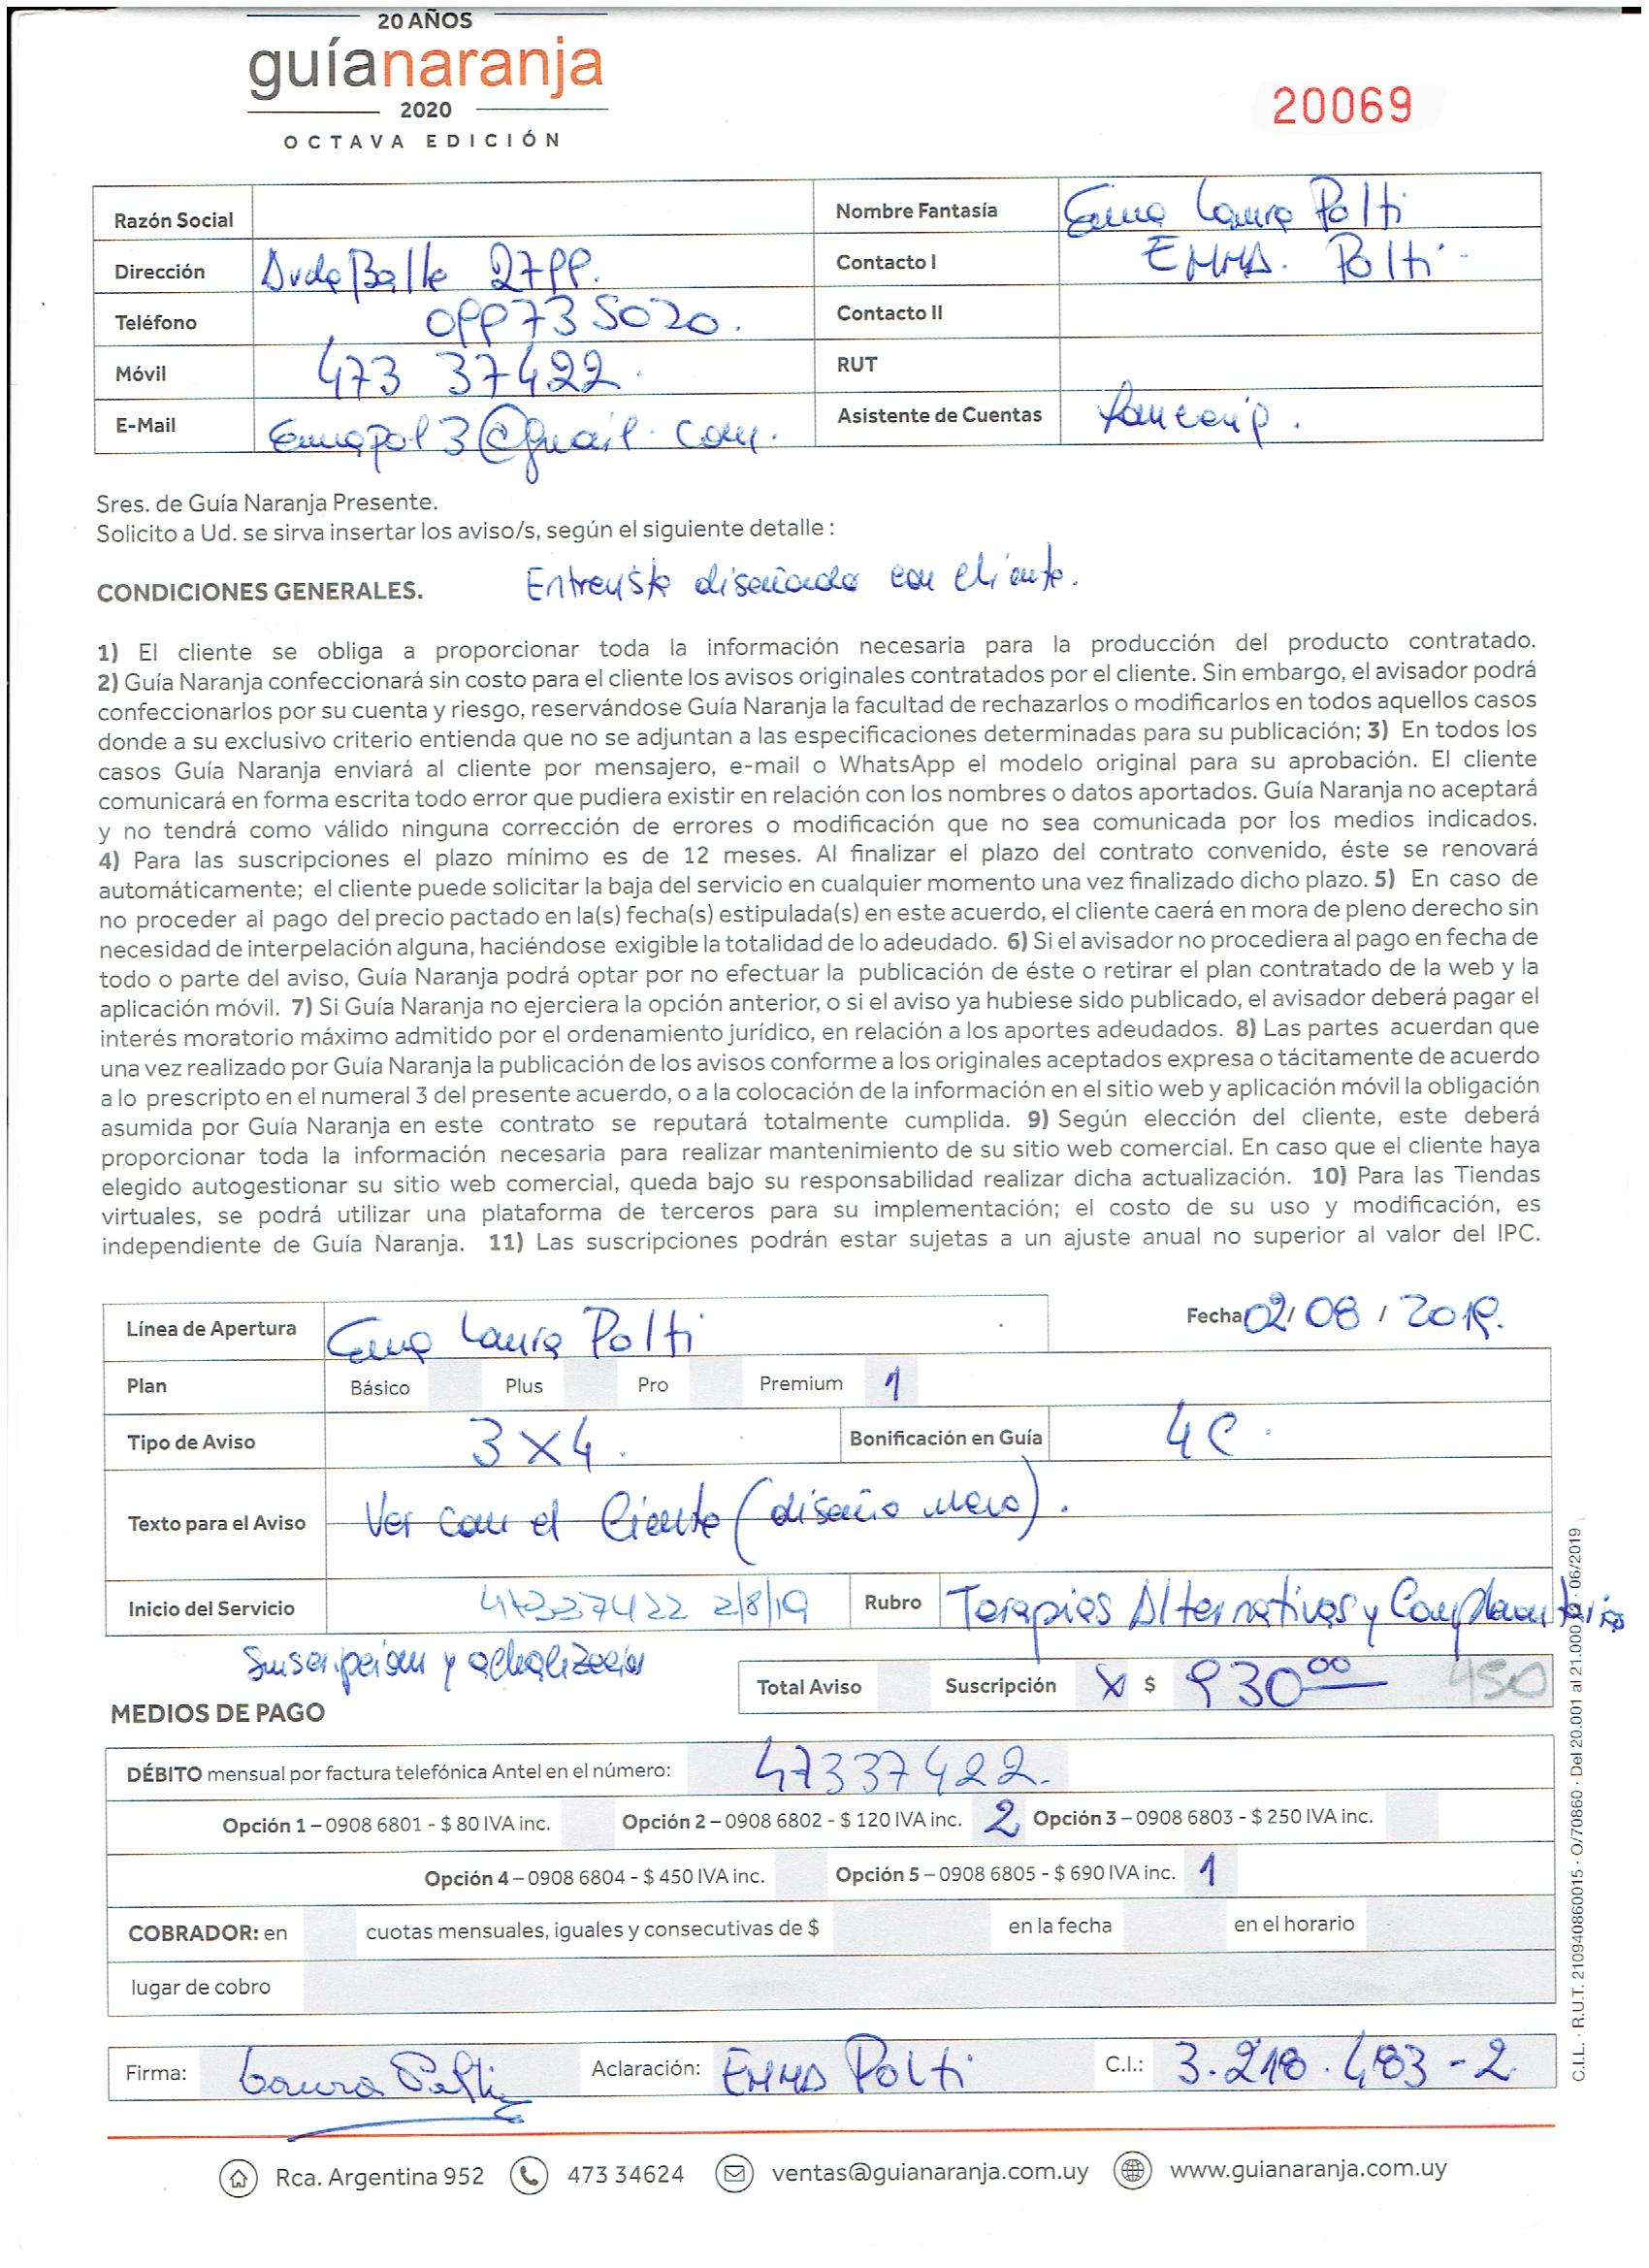 20 AÑOS
guíanaranja
2020
OCTAVA EDICIÓN
20069
Razón Social
Nombre Fantasía Ema Laura Polti
Dirección Avda Batlle 2799.
Contacto I EMMA. Polti
Teléfono 099735020.
Contacto II
Móvil 473 37422.
RUT
E-Mail Emapol3@gmail.com.
Asistente de Cuentas
Sres. de Guía Naranja Presente.
Solicito a Ud. se sirva insertar los aviso/s, según el siguiente detalle :
CONDICIONES GENERALES. Entrevista con cliente.
1) El cliente se obliga a proporcionar toda la información necesaria para la producción del producto contratado.
2) Guía Naranja confeccionará sin costo para el cliente los avisos originales contratados por el cliente. Sin embargo, el avisador podrá
confeccionarlos por su cuenta y riesgo, reservándose Guía Naranja la facultad de rechazarlos o modificarlos en todos aquellos casos
donde a su exclusivo criterio entienda que no se adjuntan a las especificaciones determinadas para su publicación; 3) En todos los
casos Guía Naranja enviará al cliente por mensajero, e-mail o WhatsApp el modelo original para su aprobación. El cliente
comunicará en forma escrita todo error que pudiera existir en relación con los nombres o datos aportados. Guía Naranja no aceptará
y no tendrá como válido ninguna corrección de errores o modificación que no sea comunicada por los medios indicados.
4) Para las suscripciones el plazo mínimo es de 12 meses. Al finalizar el plazo del contrato convenido, éste se renovará
automáticamente; el cliente puede solicitar la baja del servicio en cualquier momento una vez finalizado dicho plazo. 5) En caso de
no proceder al pago del precio pactado en la(s) fecha(s) estipulada(s) en este acuerdo, el cliente caerá en mora de pleno derecho sin
necesidad de interpelación alguna, haciéndose exigible la totalidad de lo adeudado. 6) Si el avisador no procediera al pago en fecha de
todo o parte del aviso, Guía Naranja podrá optar por no efectuar la publicación de éste o retirar el plan contratado de la web y la
aplicación móvil. 7) Si Guía Naranja no ejerciera la opción anterior, o si el aviso ya hubiese sido publicado, el avisador deberá pagar el
interés moratorio máximo admitido por el ordenamiento jurídico, en relación a los aportes adeudados. 8) Las partes acuerdan que
una vez realizado por Guía Naranja la publicación de los avisos conforme a los originales aceptados expresa o tácitamente de acuerdo
a lo prescripto en el numeral 3 del presente acuerdo, o a la colocación de la información en el sitio web y aplicación móvil la obligación
asumida por Guía Naranja en este contrato se reputará totalmente cumplida. 9) Según elección del cliente, este deberá
proporcionar toda la información necesaria para realizar mantenimiento de su sitio web comercial. En caso que el cliente haya
elegido autogestionar su sitio web comercial, queda bajo su responsabilidad realizar dicha actualización. 10) Para las Tiendas
virtuales, se podrá utilizar una plataforma de terceros para su implementación; el costo de su uso y modificación, es
independiente de Guía Naranja. 11) Las suscripciones podrán estar sujetas a un ajuste anual no superior al valor del IPC.
Línea de Apertura Ema Laura Polti
Fecha 02/ 08 / 2019.
Plan Básico Plus Pro Premium 1
Tipo de Aviso 3x4. Bonificación en Guía 4C.
Texto para el Aviso Ver con el Cliente (diseño nuevo).
Inicio del Servicio 47337422 2/8/19 Rubro Terapias Alternativas y Complementarias
Suscripcion y actualizacion
Total Aviso Suscripción X $ 930⁰⁰ 450
MEDIOS DE PAGO
DÉBITO mensual por factura telefónica Antel en el número: 47337422.
Opción 1 – 0908 6801 - $ 80 IVA inc. Opción 2 – 0908 6802 - $ 120 IVA inc. 2 Opción 3 – 0908 6803 - $ 250 IVA inc.
Opción 4 – 0908 6804 - $ 450 IVA inc. Opción 5 – 0908 6805 - $ 690 IVA inc. 1
COBRADOR: en cuotas mensuales, iguales y consecutivas de $ en la fecha en el horario
lugar de cobro
Firma: Laura Polti Aclaración: EMMA Polti C.I.: 3.218.483-2
C.I.L. · R.U.T. 210940860015 · O/70860 · Del 20.001 al 21.000 06/2019
Rca. Argentina 952 473 34624 ventas@guianaranja.com.uy www.guianaranja.com.uy